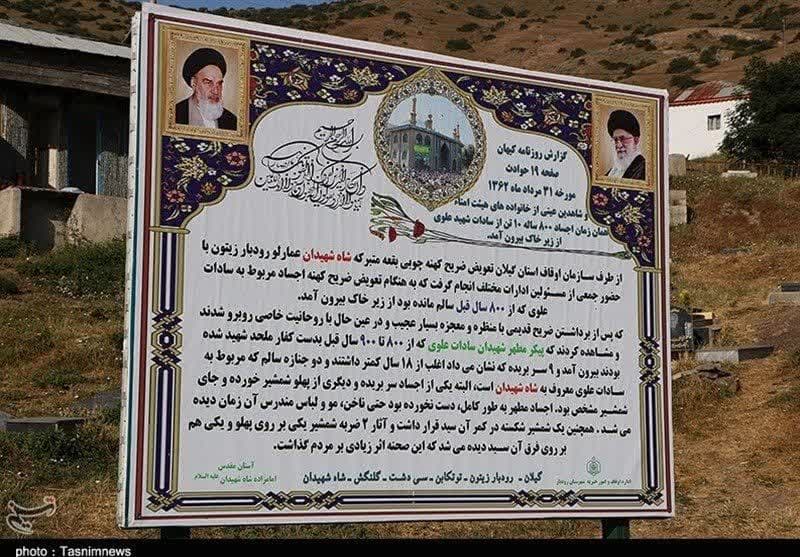 گزارش روزنامه کیهان
صفحه ۱۹ حوادث
مورخه ۳۱ مرداد ماه ۱۳۶۲
و شاهدین عینی از خانواده های هیئت امناء
همان زمان اجساد ۸۰۰ ساله ۱۰ تن از سادات شهید علوی
از زیر خاک بیرون آمد.
از طرف سازمان اوقاف استان گیلان تعویض ضریح کهنه چوبی بقعه متبرکه شاه شهیدان عمارلو رودبار زیتون با
حضور جمعی از مسئولین ادارات مختلف انجام گرفت که به هنگام تعویض ضریح کهنه اجساد مربوط به سادات
علوی که از ۸۰۰ سال قبل سالم مانده بود از زیر خاک بیرون آمد.
که پس از برداشتن ضریح قدیمی با منظره و معجزه بسیار عجیب و در عین حال با روحانیت خاصی روبرو شدند
و مشاهده کردند که پیکر مطهر شهیدان سادات علوی که از ۸۰۰ تا ۹۰۰ سال قبل بدست کفار ملحد شهید شده
بودند بیرون آمد و ۹ سر بریده که نشان می داد اغلب از ۱۸ سال کمتر داشتند و دو جنازه سالم که مربوط به
سادات علوی معروف به شاه شهیدان است، البته یکی از اجساد سر بریده و دیگری از پهلو شمشیر خورده و جای
شمشیر مشخص بود. اجساد مطهر به طور کامل، دست نخورده بود حتی ناخن، مو و لباس مندرس آن زمان دیده
می شد. همچنین یک شمشیر شکسته در کمر آن سید قرار داشت و آثار ۲ ضربه شمشیر یکی بر روی پهلو و یکی هم
بر روی فرق آن سید دیده می شد که این صحنه اثر زیادی بر مردم گذاشت.
گیلان - رودبار زیتون - توتکابن - سی دشت - گلنگش - شاه شهیدان
آستان مقدس
امامزاده شاه شهیدان علیه السلام
اداره اوقاف و امور خیریه شهرستان رودبار
photo : Tasnimnews